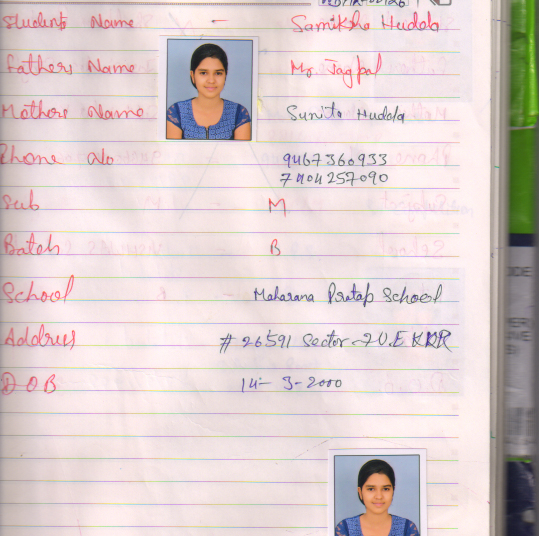 Students Name - Samiksha Hudda
Fathers Name Mr Jagpal
Mothers Name Sunita Hudda
Phone No 9467360933
7404257090
Sub M
Batch B
School Maharana Pratap School
Address # 26591 Sector-7 U.E KKR
D O B 14-3-2000